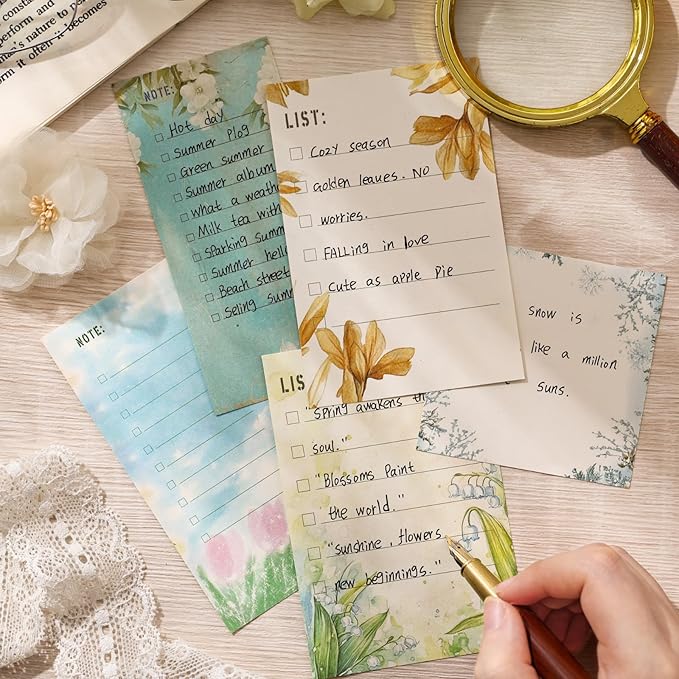 constan
perform and
's nature to
it often it becomes
NOTE:
Hot day
Summer Plog
Green summer
Summer album
what a weath
Milk tea with
Sparking Summ
Summer hello
Beach street
Seling Summ
LIST:
Cozy season
Golden leaves. NO
worries.
FALLing in love
Cute as apple Pie
Snow is
like a million
suns.
NOTE:
LIS
"Spring awakens th
soul."
"Blossoms Paint
the world."
"sunshine, flowers
new beginnings."